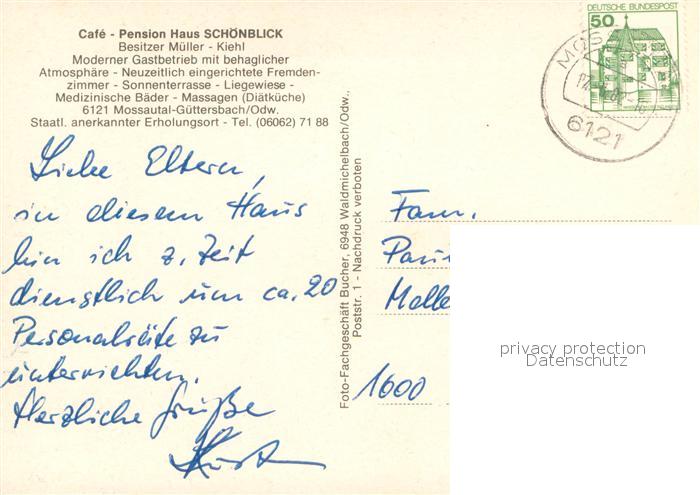 Café - Pension Haus SCHÖNBLICK
Besitzer Müller - Kiehl
Moderner Gastbetrieb mit behaglicher
Atmosphäre - Neuzeitlich eingerichtete Fremden-
zimmer - Sonnenterrasse - Liegewiese -
Medizinische Bäder - Massagen (Diätküche)
6121 Mossautal-Güttersbach/Odw.
Staatl. anerkannter Erholungsort - Tel. (06062) 71 88
Liebe Eltern,
in diesem Haus
bin ich z. Zeit
dienstlich um ca. 20
Personalräte zu
unterrichten.
Herzliche Grüße
Foto-Fachgeschäft Bucher, 6948 Waldmichelbach/Odw.,
Poststr. 1 - Nachdruck verboten
DEUTSCHE BUNDESPOST
50
MOS
6121
Fam.
1600
privacy protection
Datenschutz